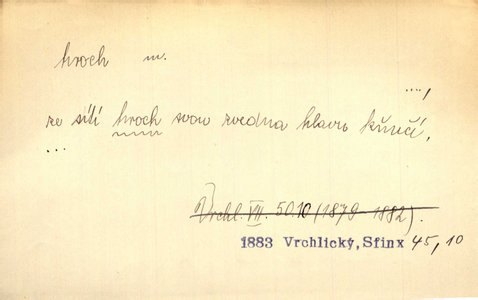 hroch m.
...,
ze sítí hroch svou zvedna hlavu křičí,
...
Vrchl. VII. 50.10 (1879-1882).
1883 Vrchlický, Sfinx 45,10